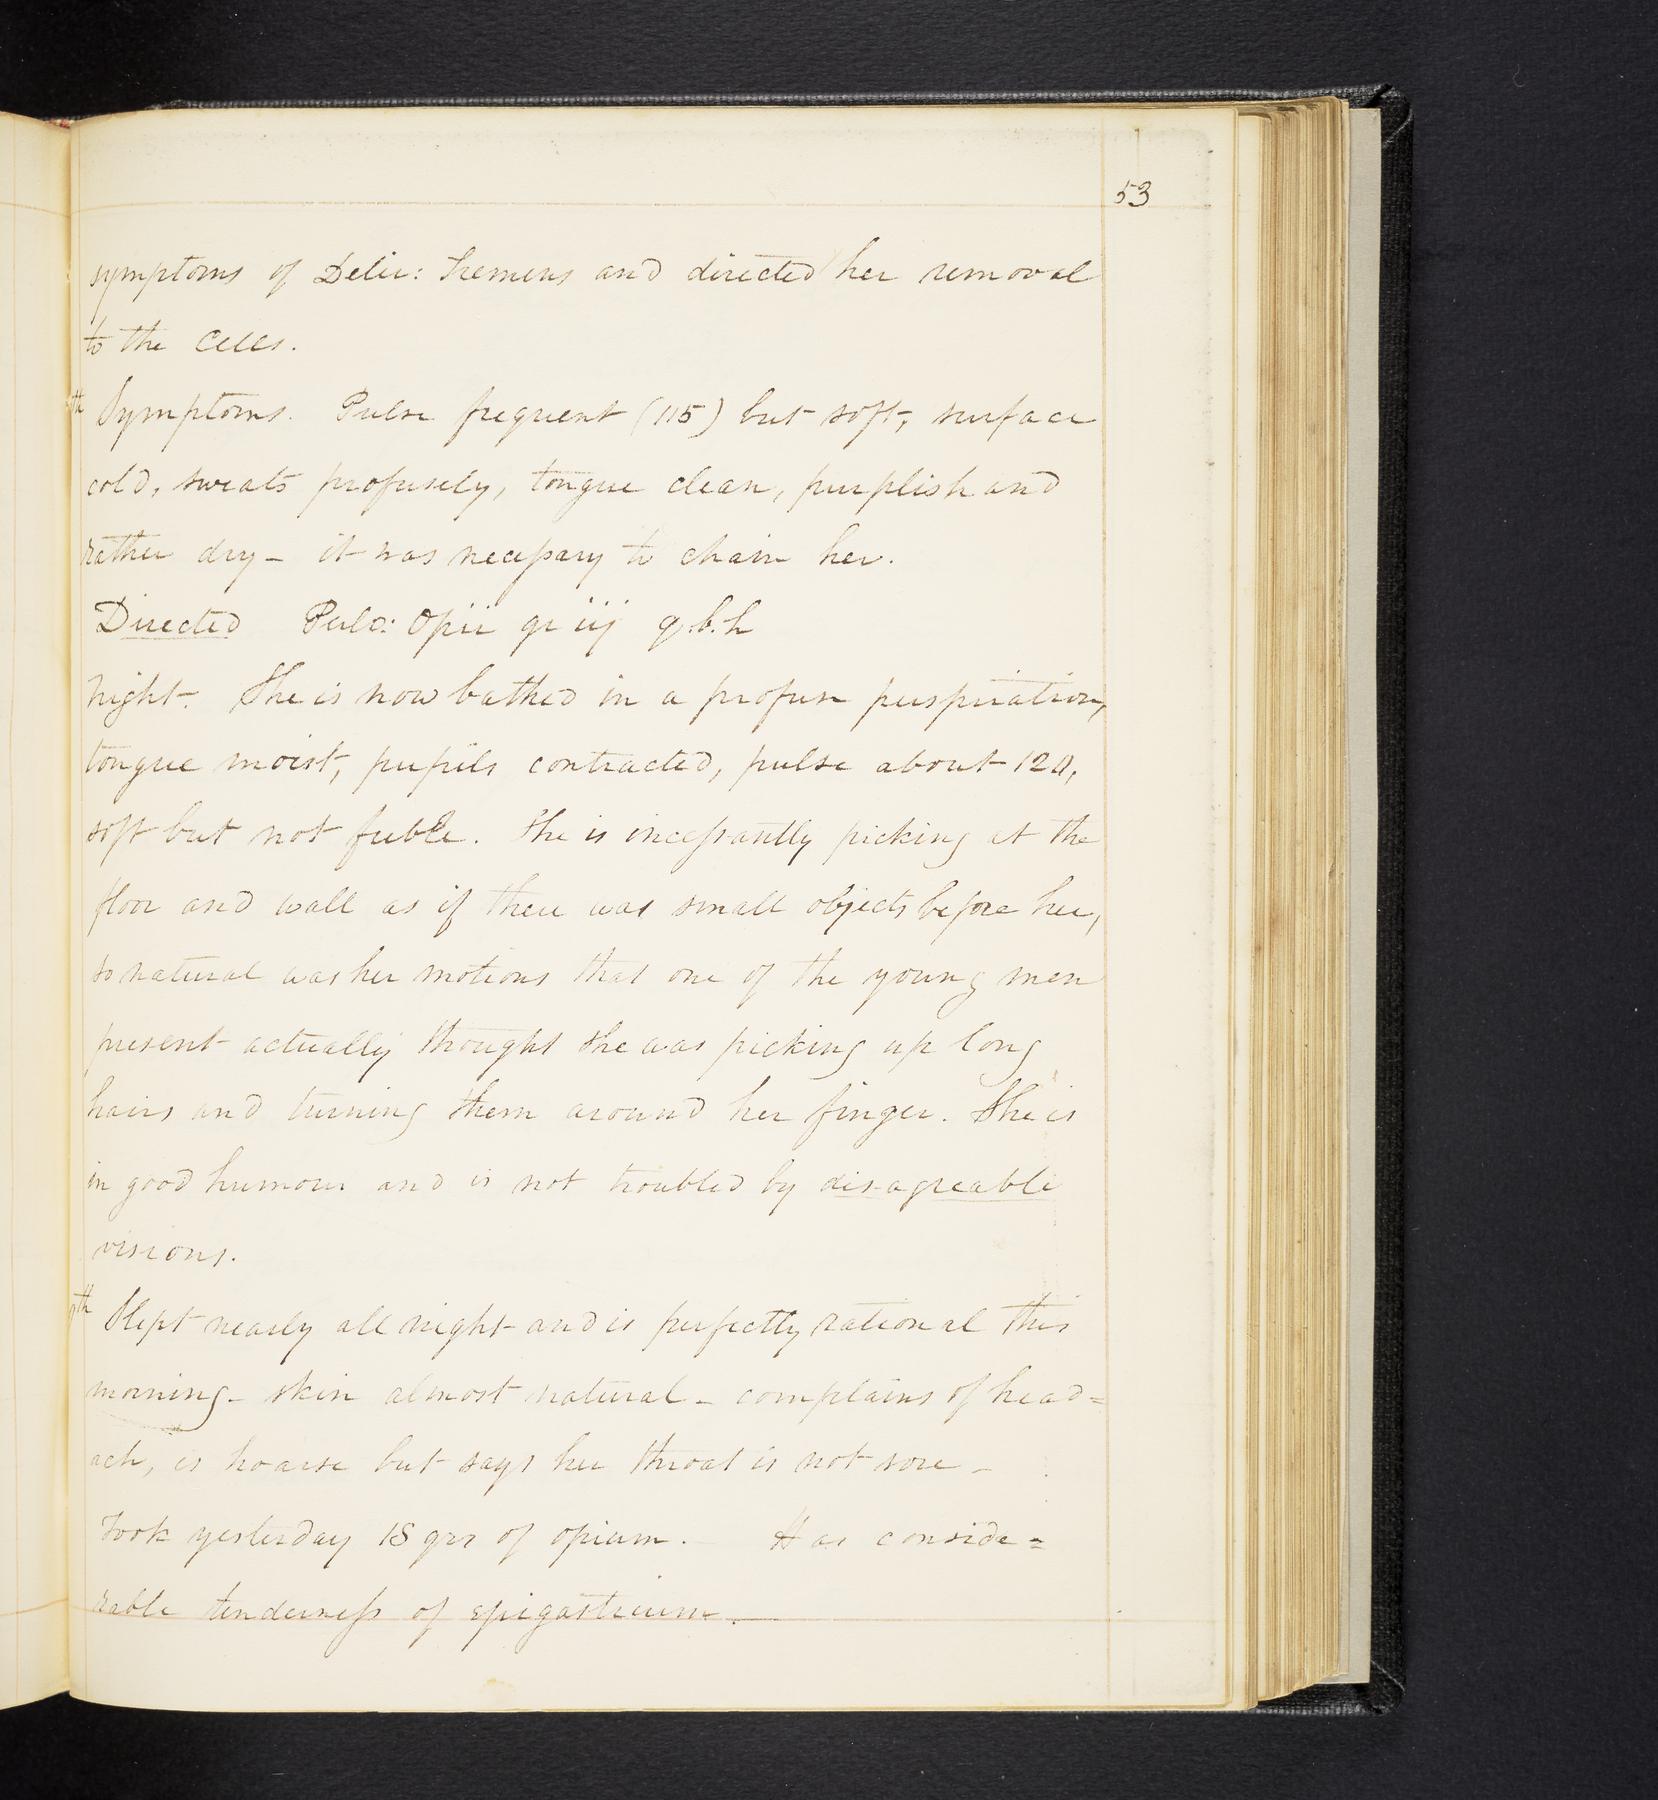 53
symptoms of Delir: Tremens and directed her removal
to the Cells.
th Symptoms. Pulse frequent (115) but soft, surface
cold, sweats profusely, tongue clean, purplish and
rather dry - it was necessary to chain her.
Directed Pulv: Opii gr iij q.b.h
Night. She is now bathed in a profuse perspiration,
tongue moist, pupils contracted, pulse about 120,
soft but not feeble. She is incessantly picking at the
floor and wall as if there was small objects before her,
so natural was her motions that one of the young men
present actually thought she was picking up long
hairs and turning them around her finger. She is
in good humour and is not troubled by disagreable
visions.
9th Slept nearly all night and is perfectly rational this
morning - skin almost natural - complains of head=
ach, is hoarse but says her throat is not sore -
Took yesterday 18 grs of opium. Has conside=
rable tenderness of epigastrium.